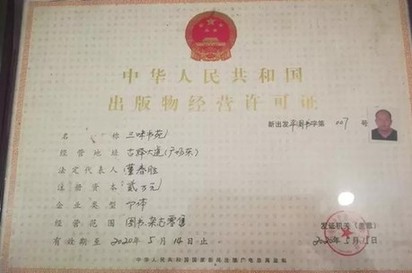 中华人民共和国
出版物经营许可证
新出发 图书字第 007 号
名称 三味书苑
经营地址 古驿大道
法定代表人 董春胜
注册资本 贰万元
企业类型 个体
经营范围 图书、杂志零售
有效期至 2020年5月14日止
发证机关（盖章）
2020年5月15日
中华人民共和国国家新闻出版广电总局监制